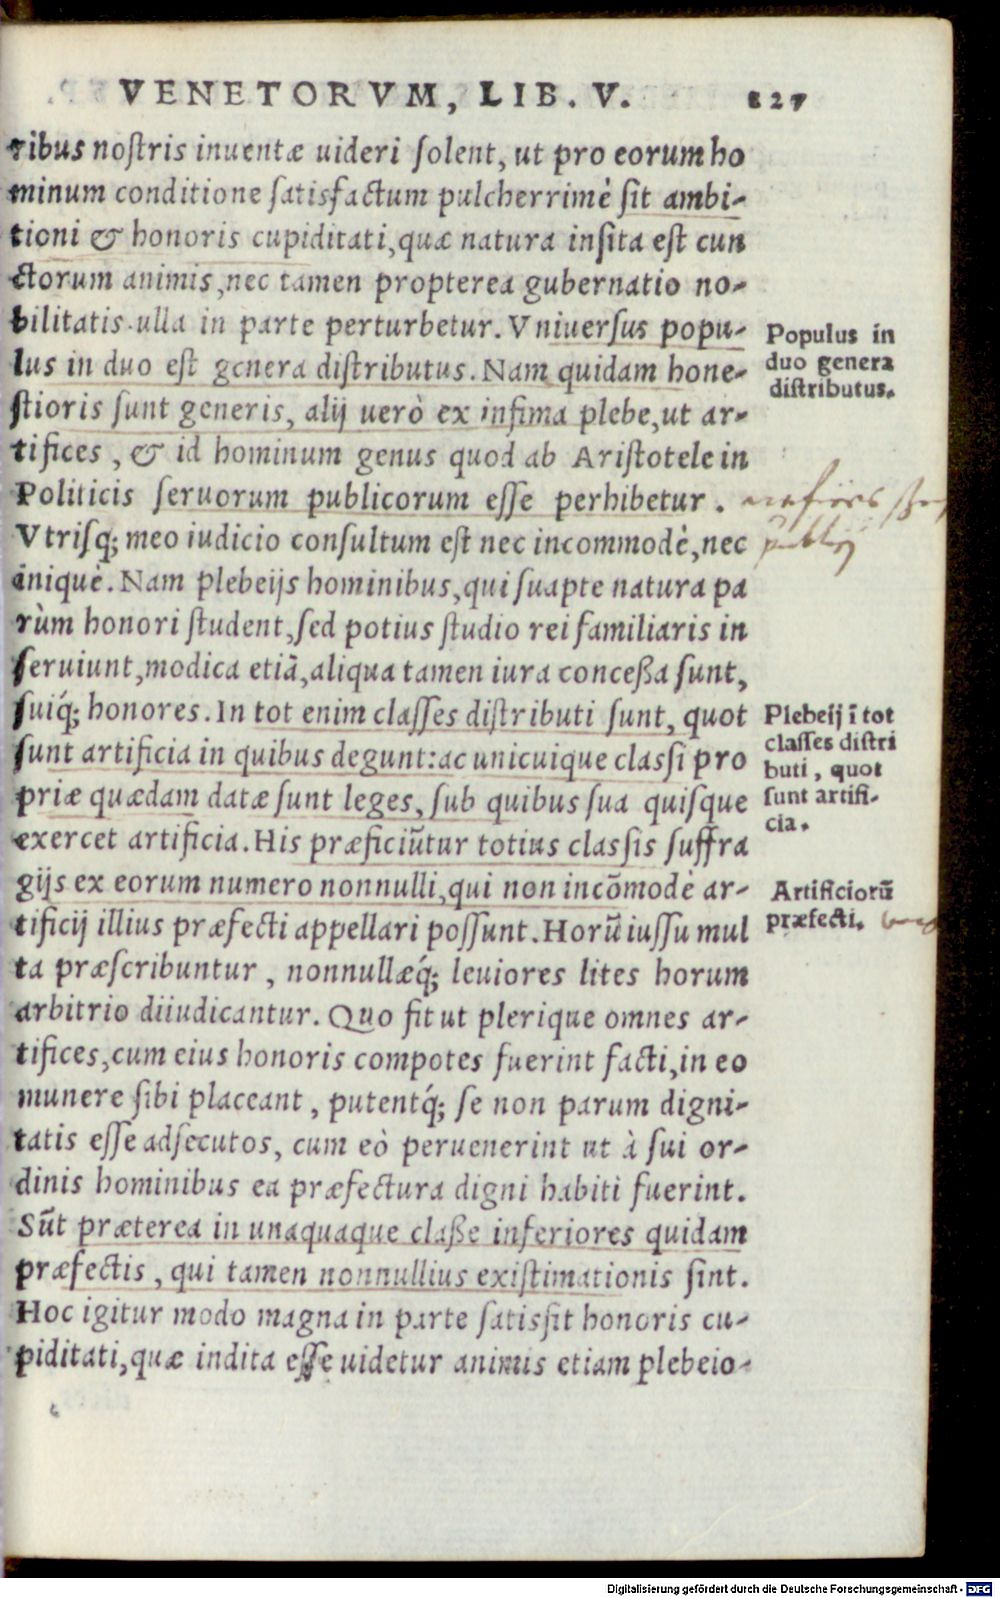 VENETORVM, LIB. V. 827
ribus nostris inuentæ uideri solent, ut pro eorum ho
minum conditione satisfactum pulcherrimè sit ambi-
tioni & honoris cupiditati, quæ natura insita est cun
ctorum animis, nec tamen propterea gubernatio no-
bilitatis ulla in parte perturbetur. Vniuersus popu-
lus in duo est genera distributus. Nam quidam hone-
stioris sunt generis, alij uerò ex infima plebe, ut ar-
tifices, & id hominum genus quod ab Aristotele in
Politicis seruorum publicorum esse perhibetur.
Vtrisq; meo iudicio consultum est nec incommodè, nec
iniquè. Nam plebeijs hominibus, qui suapte natura pa
rùm honori student, sed potius studio rei familiaris in
seruiunt, modica etiã, aliqua tamen iura conceßa sunt,
suiq́; honores. In tot enim classes distributi sunt, quot
sunt artificia in quibus degunt: ac unicuique classi pro
priæ quædam datæ sunt leges, sub quibus sua quisque
exercet artificia. His præficiũtur totius classis suffra
gijs ex eorum numero nonnulli, qui non incõmodè ar-
tificij illius præfecti appellari possunt. Horũ iussu mul
ta præscribuntur, nonnullæq́; leuiores lites horum
arbitrio diiudicantur. Quo fit ut plerique omnes ar-
tifices, cum eius honoris compotes fuerint facti, in eo
munere sibi placeant, putentq́; se non parum digni-
tatis esse adsecutos, cum eò peruenerint ut à sui or-
dinis hominibus ea præfectura digni habiti fuerint.
Sũt præterea in unaquaque claße inferiores quidam
præfectis, qui tamen nonnullius existimationis sint.
Hoc igitur modo magna in parte satis fit honoris cu-
piditati, quæ indita esse uidetur animis etiam plebeio-
Populus in
duo genera
distributus.
publici
Plebeij ĩ tot
classes distri
buti, quot
sunt artifi-
cia.
Artificiorũ
præfecti.
Digitalisierung gefördert durch die Deutsche Forschungsgemeinschaft - DFG